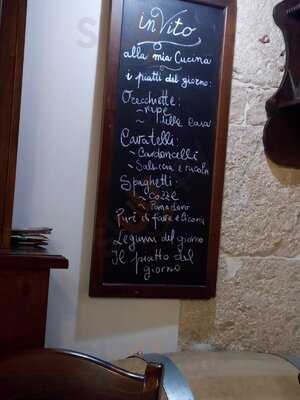 inVito
alla mia Cucina
i piatti del giorno:
Orecchiette:
~ rape
~ della casa
Cavatelli:
~ Cardoncelli
~ Salsiccia e rucola
Spaghetti:
~ Cozze
~ Pomodoro
Purè di fave e Cicorie
Legumi del giorno
Il piatto del
giorno